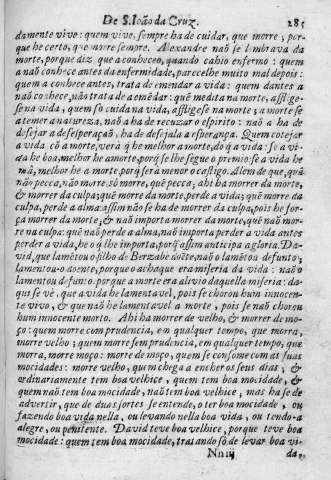 De S. João da Cruz. 285
damente vive: quem vive, sempre ha de cuidar, que morre; por-
que he certo, que morre sempre. Alexandre naõ se lembrava da
morte, porque diz que a conheceo, quando cahio enfermo: quem
a naõ conhece antes da enfermidade, parecelhe muito mal depois:
quem a conhece antes, trata de emendar a vida: quem dantes a
naõ cõhece, não trata de a emẽdar: quẽ medita na morte, afflige-
se na vida, quem só cuida na vida, afflige se na morte; a morte se
a temer a natureza, naõ a ha de recuzar o espirito: naõ a ha de
desejar a desesperaçaõ, ha de desejala a esperança. Quem cotejar
a vida cõ a morte, verá q̃ he melhor a morte, do q̃ a vida: se a vi-
da he boa, melhor he a morte, porq̃ se lhe segue o premio: se a vida he
má, melhor he a morte, porq̃ será menor o castigo. Alem de que, quẽ
naõ pecca, naõ morre, só morre, quẽ pecca; ahi ha morrer da morte,
& morrer da culpa; quẽ morre da morte, perde a vida; quẽ morre da
culpa, perde a alma: assim naõ se ha de morrer da culpa, pois he for-
ça morrer da morte; & naõ importa morrer da morte, quẽ naõ mor-
re na culpa: quẽ naõ perde a alma, naõ importa perder a vida antes
perder a vida, he o q̃ lhe importa, porq̃ assim anticipa a gloria. Da-
vid, que lamẽtou o filho de Berzabe doẽte, naõ o lamẽtou defunto;
lamentou-o doente, porque o achaque era miseria da vida: naõ o
lamentou defunto, porque a morte era alivio daquella miseria: da-
qui se vè, que a vida he lamentavel, pois se chorou hum innocen-
te vivo, & que naõ he lamentavel a morte, pois se naõ chorou
hum innocente morto. Ahi ha morrer de velho, & morrer de mo-
ço: quem morre com prudencia, em qualquer tempo, que morra,
morre velho; quem morre sem prudencia, em qualquer tempo, que
morra, morre moço: morte de moço, quem se consome com as suas
mocidades: morre velho, quem chega a encher os seus dias; &
ordinariamente tem boa velhice, quem tem boa mocidade, &
quem naõ tem boa mocidade, naõ tem boa velhice; mas ha se de
advertir, que de duas sortes se entende, o ter boa mocidade, ou
fazendo boa vida nella, ou levando nella boa vida, ou tendo-a
alegre, ou penitente. David teve boa velhice, porque teve boa
mocidade: quem tem boa mocidade, tratando só de levar boa vi-
Nniij da,